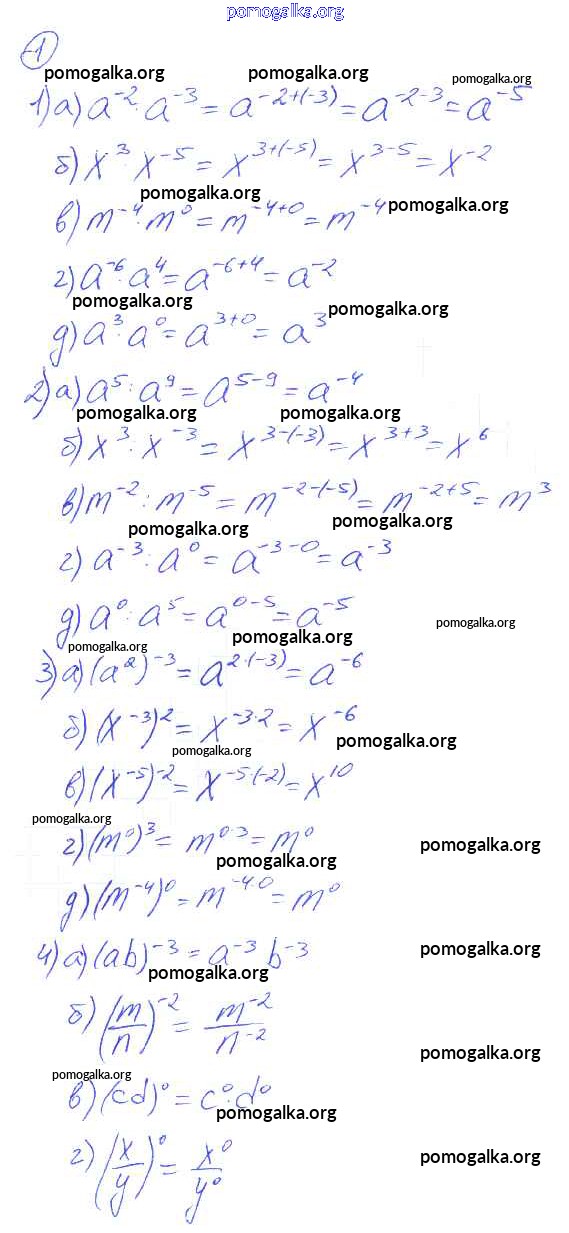 pomogalka.org
1
pomogalka.org pomogalka.org pomogalka.org
1) а) a⁻² · a⁻³ = a⁻²⁺⁽⁻³⁾ = a⁻²⁻³ = a⁻⁵
б) x³ · x⁻⁵ = x³⁺⁽⁻⁵⁾ = x³⁻⁵ = x⁻²
pomogalka.org pomogalka.org
в) m⁻⁴ · m⁰ = m⁻⁴⁺⁰ = m⁻⁴
г) a⁻⁶ · a⁴ = a⁻⁶⁺⁴ = a⁻²
pomogalka.org pomogalka.org
д) a³ · a⁰ = a³⁺⁰ = a³
2) а) a⁵ : a⁹ = a⁵⁻⁹ = a⁻⁴
pomogalka.org pomogalka.org
б) x³ : x⁻³ = x³⁻⁽⁻³⁾ = x³⁺³ = x⁶
в) m⁻² : m⁻⁵ = m⁻²⁻⁽⁻⁵⁾ = m⁻²⁺⁵ = m³
pomogalka.org pomogalka.org
г) a⁻³ : a⁰ = a⁻³⁻⁰ = a⁻³
д) a⁰ : a⁵ = a⁰⁻⁵ = a⁻⁵
pomogalka.org pomogalka.org pomogalka.org
3) а) (a²)⁻³ = a²·⁽⁻³⁾ = a⁻⁶
б) (x⁻³)² = x⁻³·² = x⁻⁶
pomogalka.org pomogalka.org
в) (x⁻⁵)⁻² = x⁻⁵·⁽⁻²⁾ = x¹⁰
pomogalka.org
г) (m⁰)³ = m⁰·³ = m⁰
pomogalka.org pomogalka.org
д) (m⁻⁴)⁰ = m⁻⁴·⁰ = m⁰
4) а) (ab)⁻³ = a⁻³ b⁻³
pomogalka.org pomogalka.org
б) (m/n)⁻² = m⁻²/n⁻²
pomogalka.org pomogalka.org
в) (cd)⁰ = c⁰ · d⁰
pomogalka.org
г) (x/y)⁰ = x⁰/y⁰
pomogalka.org